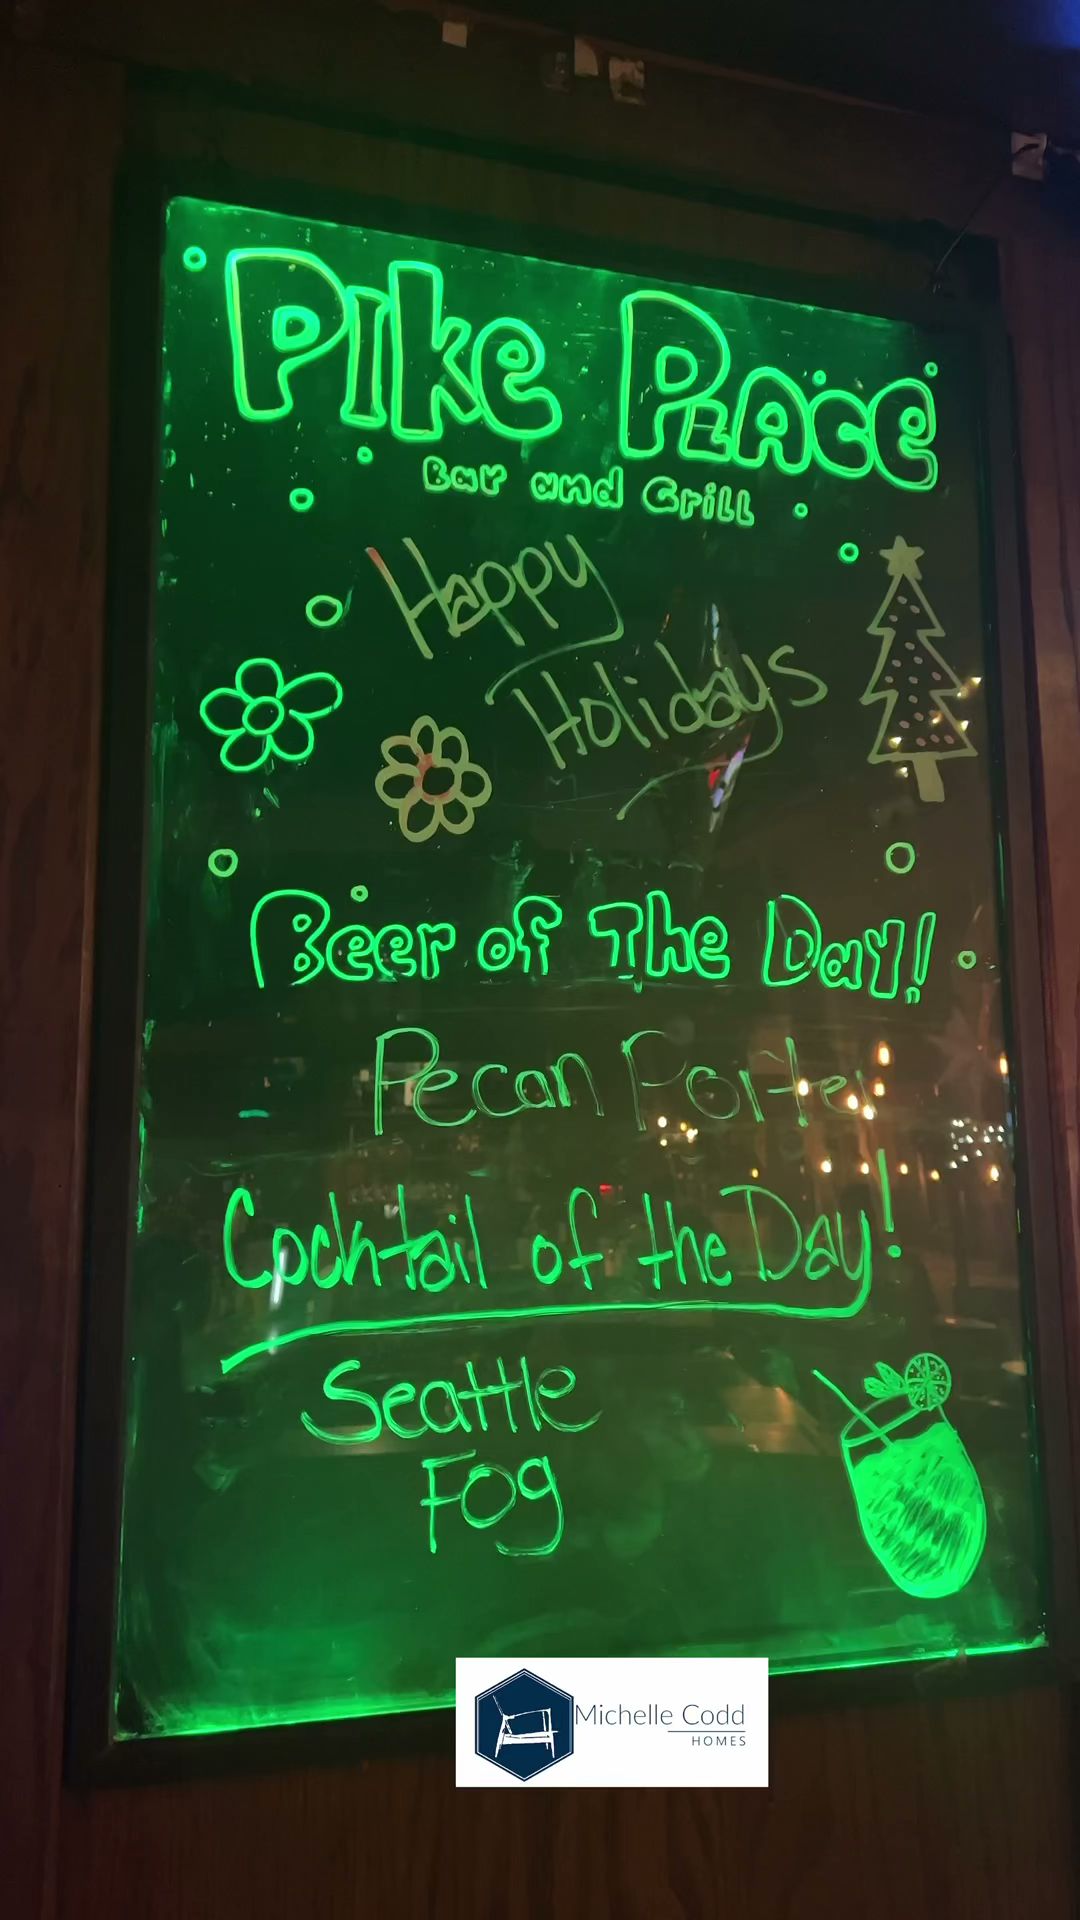 Pike Place
Bar and Grill
Happy
Holidays
Beer of The Day!
Pecan Porter
Cocktail of the Day!
Seattle
Fog
Michelle Codd
HOMES